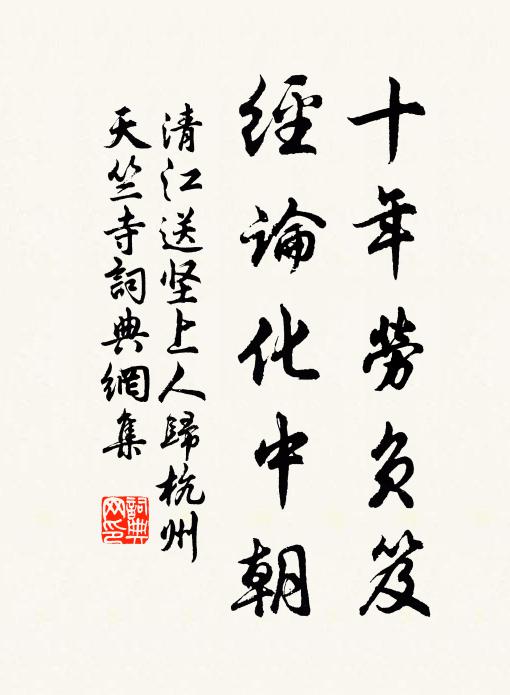 十年勞负笈
經論化中朝
清江送坚上人歸杭州
天竺寺詞典網集
詞典網印